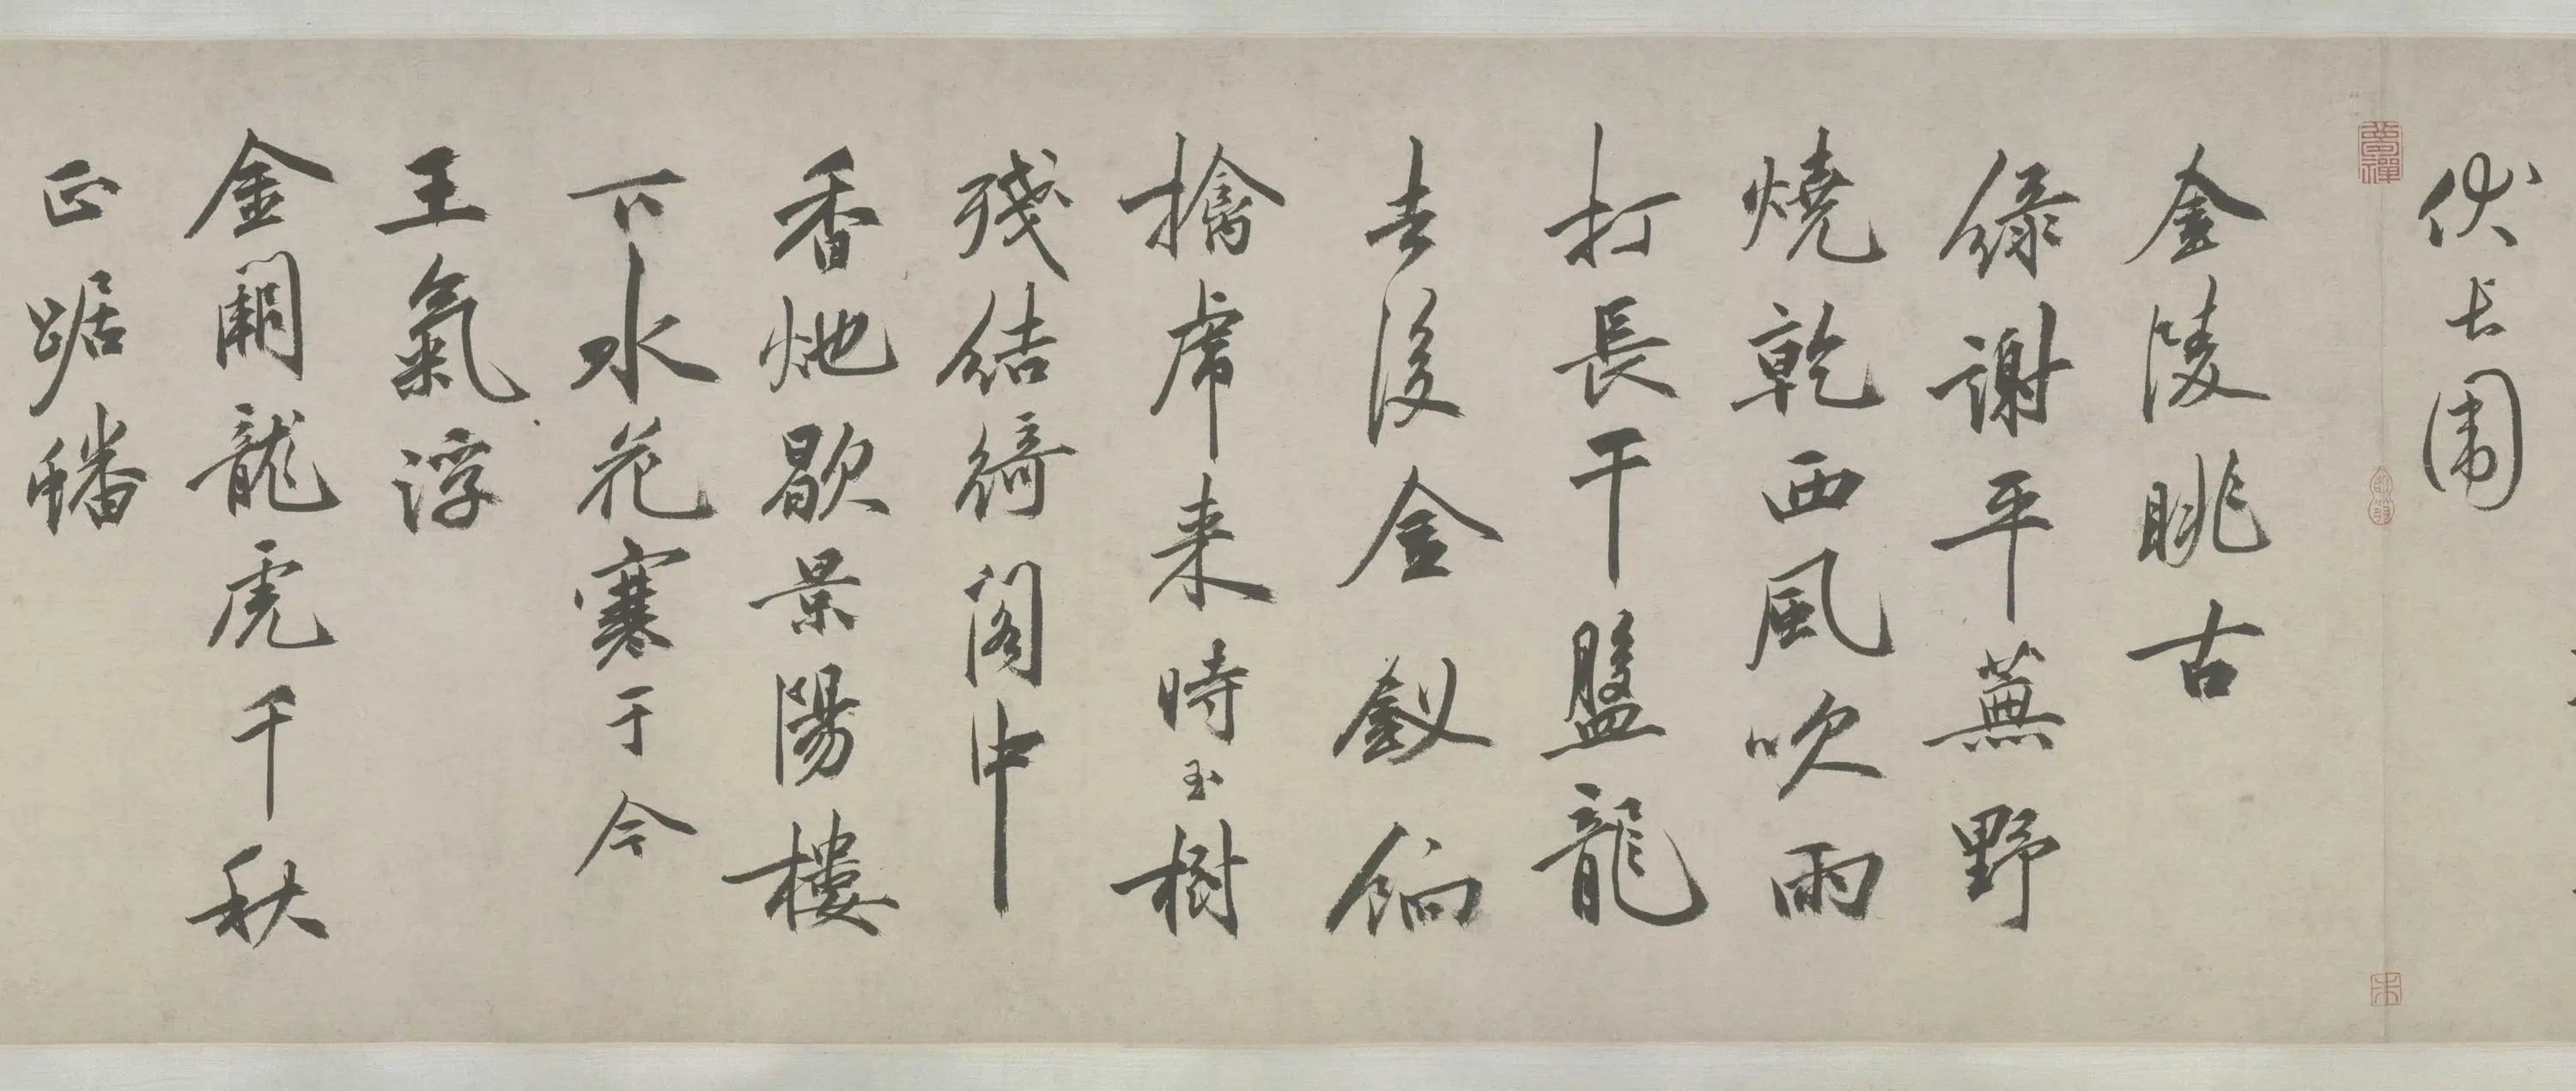 伏長圍
金陵眺古
綠謝平蕪野
燒乾西風吹雨
打長干盤龍
去後金釵餉
擒虎来時玉樹
殘結綺閣中
香灺歇景陽樓
下水花寒于今
王氣浮
金闕龍虎千秋
正踞蟠